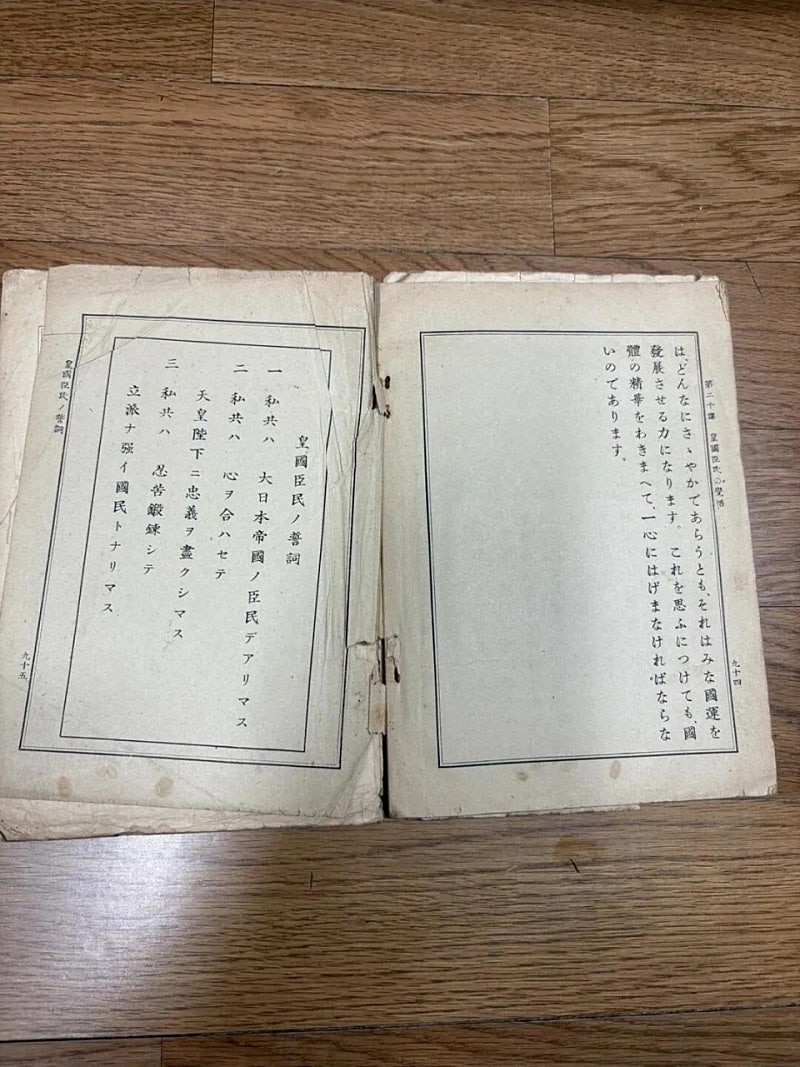 第二十課 皇國臣民の覺悟
は、どんなにさゝやかであらうとも、それはみな國運を
發展させる力になります。これを思ふにつけても、國
體の精華をわきまへて、一心にはげまなければならな
いのであります。
九十四
皇國臣民ノ誓詞
一 私共ハ 大日本帝國ノ臣民デアリマス
二 私共ハ 心ヲ合ハセテ
天皇陛下ニ忠義ヲ盡クシマス
三 私共ハ 忍苦鍛鍊シテ
立派ナ强イ國民トナリマス
皇國臣民ノ誓詞
九十五